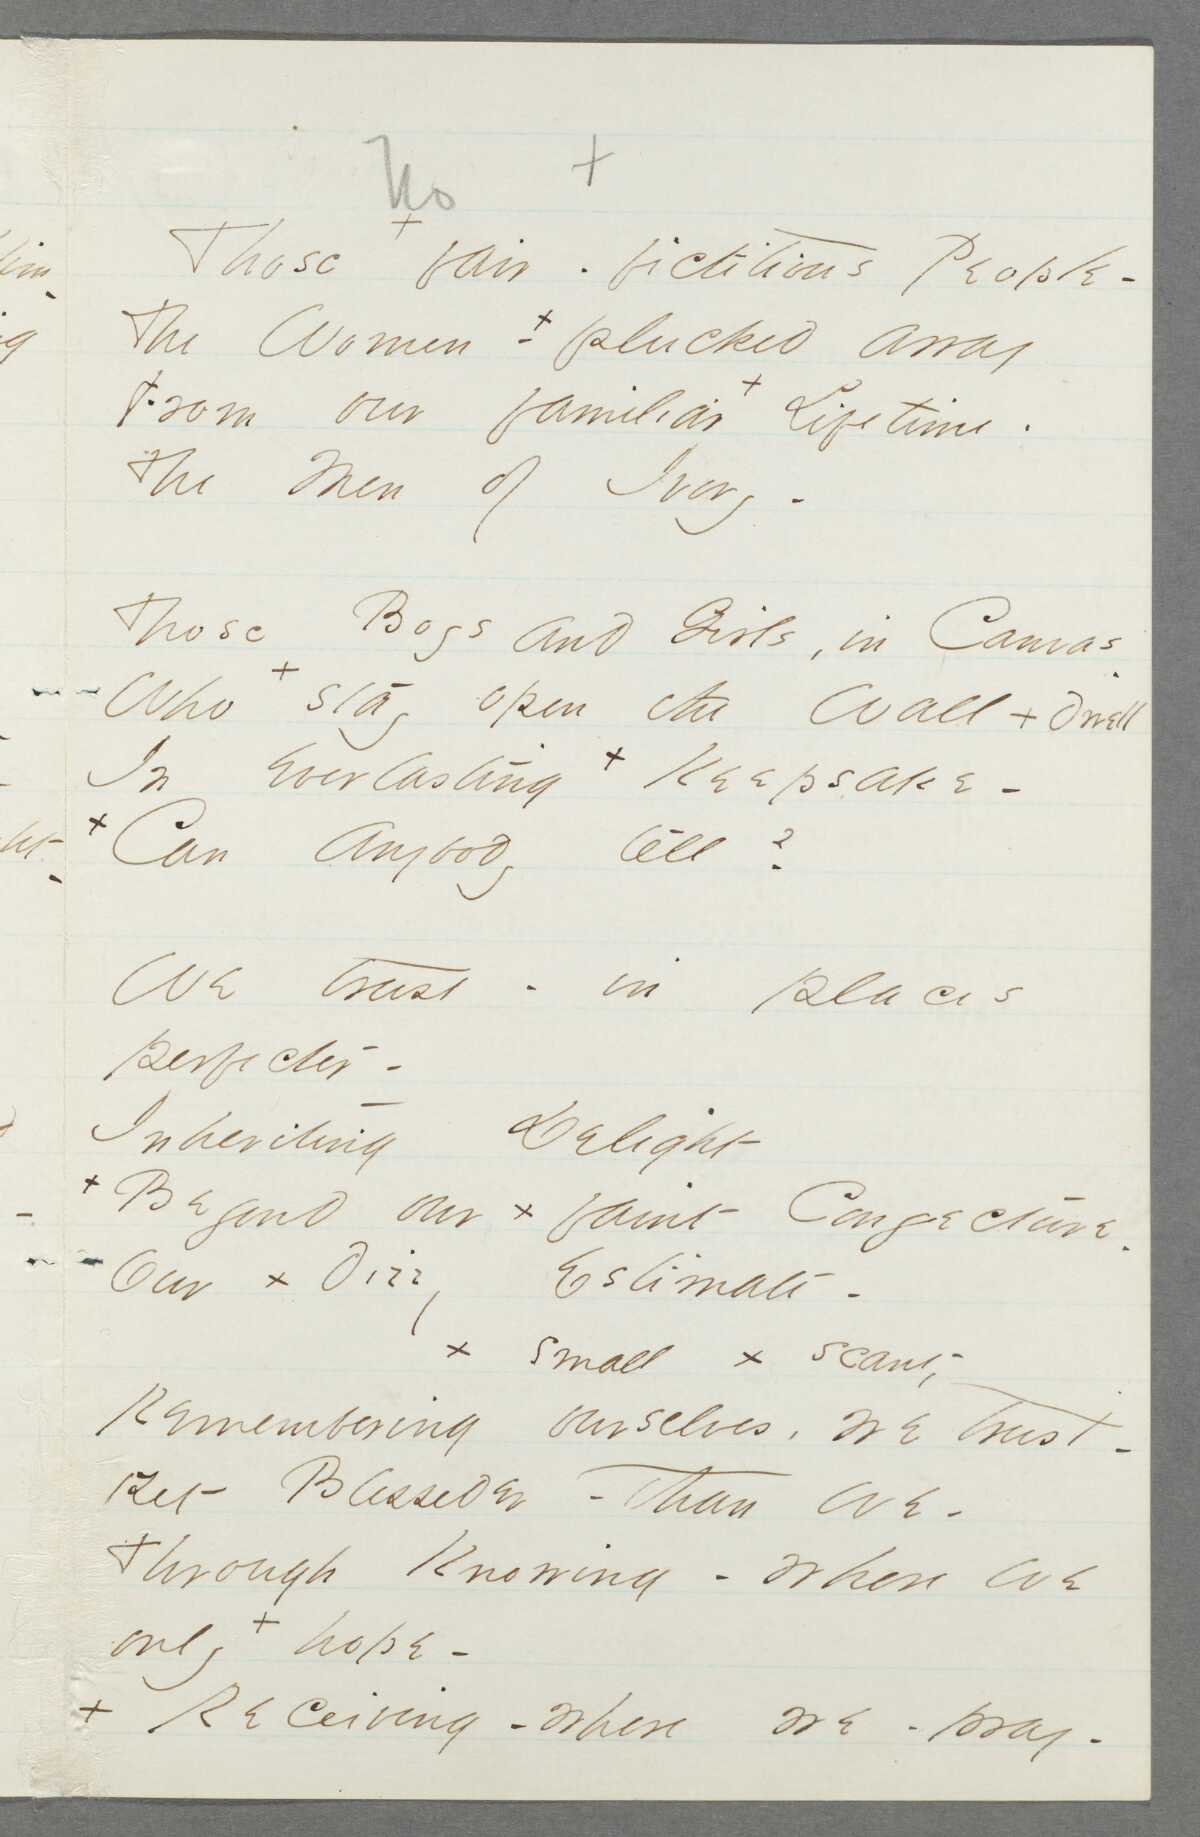 No +
Those + fair - fictitious People -
The Women - + plucked away
From our familiar + Lifetime -
The Men of Ivory -
Those Boys and Girls, in Canvas -
Who + stay upon the Wall + Dwell
In Everlasting + Keepsake -
+ Can Anybody tell?
We trust - in places
perfecter -
Inheriting Delight
+ Beyond our + faint Conjecture -
Our + Dizzy Estimate -
+ small + scanty
Remembering ourselves, we trust -
Yet Blesseder - than We -
Through Knowing - where We
only + hope -
+ Receiving - where we - pray -